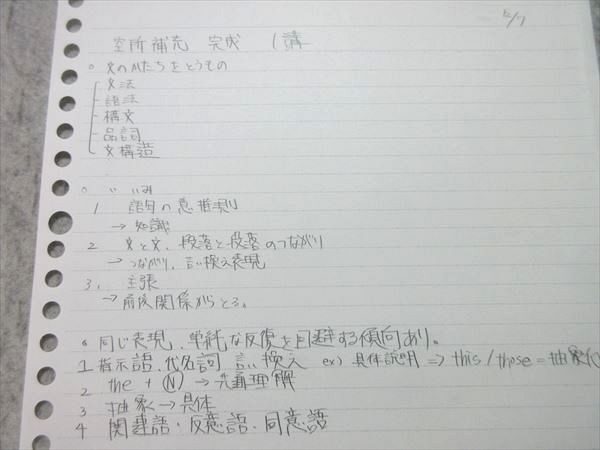 5/7
空所補充 完成 1講
○ 文のかたちをとうもの
文法
語法
構文
品詞
文構造
○ 〃 いみ
1 語句の意 推測
→ 知識
2 文と文、段落と段落のつながり
→ つながり、言い換え表現
3. 主張
→ 前後関係からとる。
○ 同じ表現、単純な反復を回避する傾向あり。
1 指示語、代名詞 言い換え ex) 具体説明 ⇒ this / those = 抽象化
2 the + Ⓝ →
3 抽象 → 具体
4 関連語・反意語・同意語